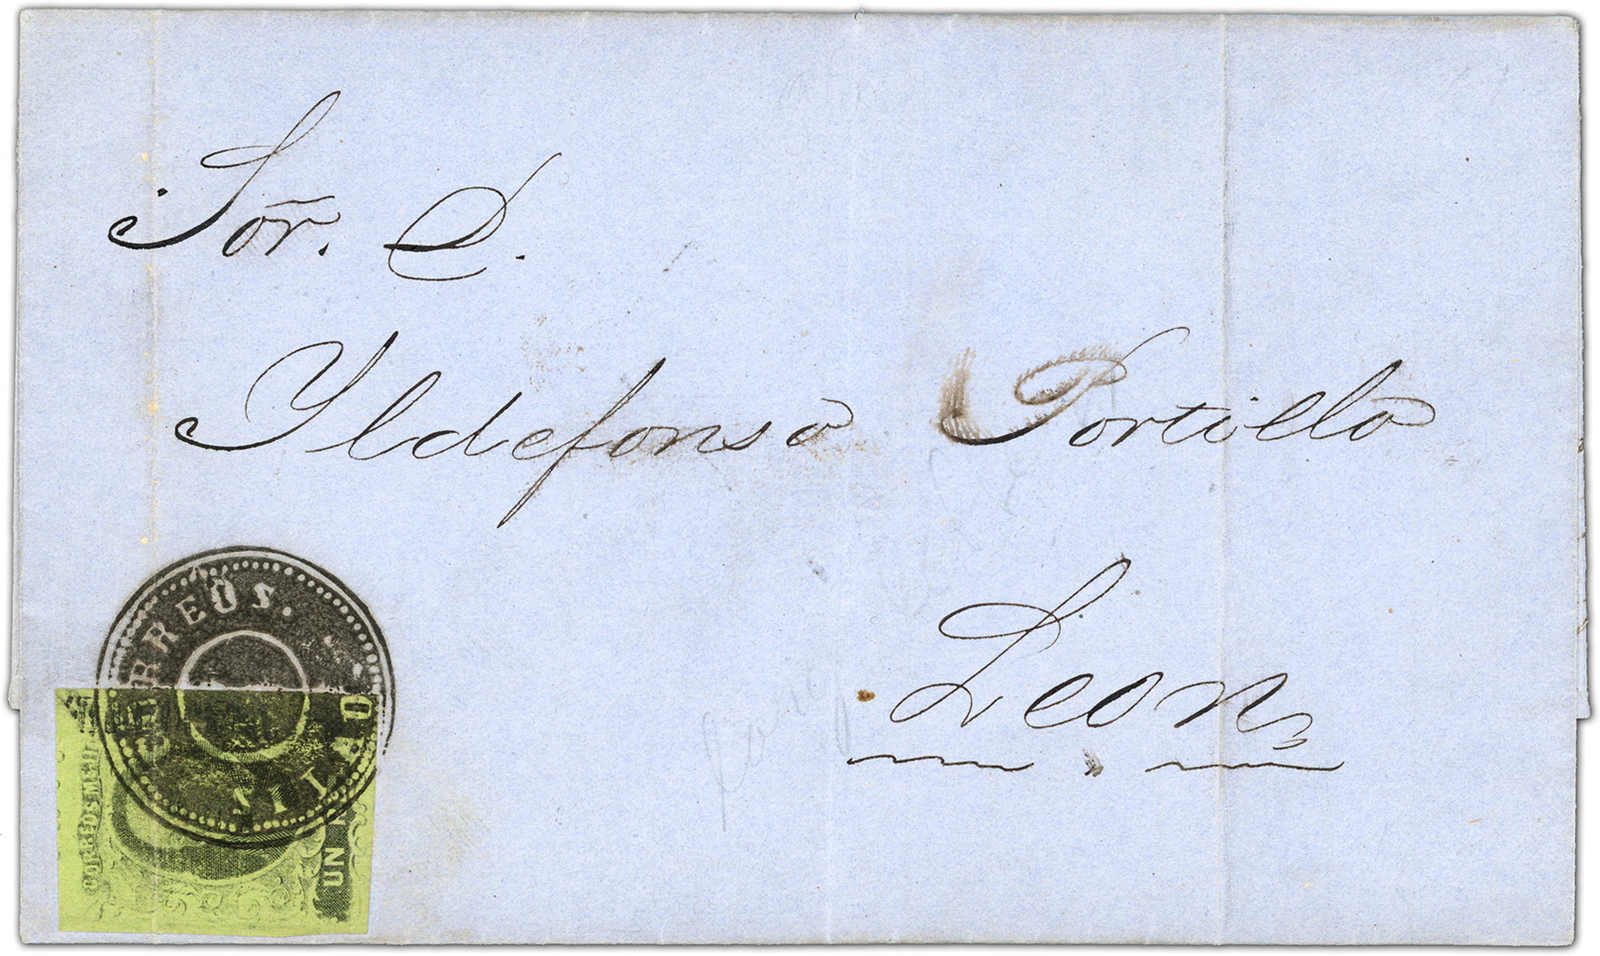 Sõr. D.
Yldefonso Portillo
Leon
CORREOS.
SILAO
CORREOS MEJ
UN R